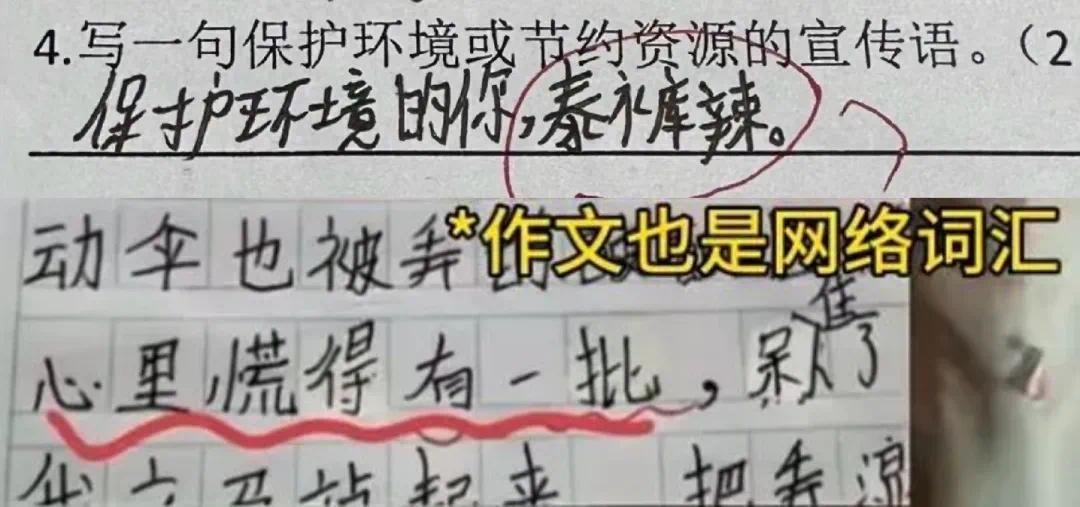 4.写一句保护环境或节约资源的宣传语。（2
保护环境的你,泰裤辣。
动伞也被弄
*作文也是网络词汇
心里慌得有一批，呆了
立马站起来 把弄